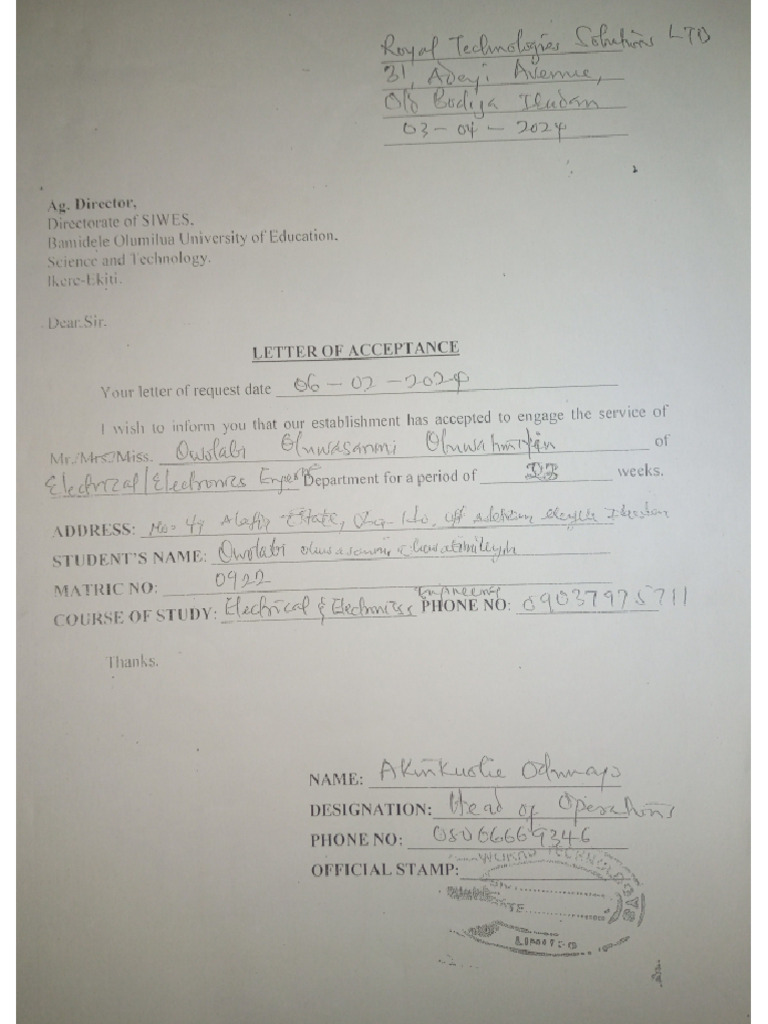 Royal Technologies Solutions LTD
31, Adeyi Avenue,
Old Bodija Ibadan
03-04-2024
Ag. Director,
Directorate of SIWES.
Bamidele Olumilua University of Education.
Science and Technology.
Ikere-Ekiti.
Dear Sir.
LETTER OF ACCEPTANCE
Your letter of request date 06-02-2024
I wish to inform you that our establishment has accepted to engage the service of
Mr./Mrs./Miss. Owolabi Oluwasanmi of
Electrical/Electronics Department for a period of weeks.
ADDRESS: Estate,
STUDENT'S NAME: Owolabi Oluwasanmi
MATRIC NO: 0922
COURSE OF STUDY: Electrical & Electronics Engineering PHONE NO: 09037975711
Thanks.
NAME: Odunayo
DESIGNATION: Head of Operations
PHONE NO: 08066669346
OFFICIAL STAMP:
LIMITED